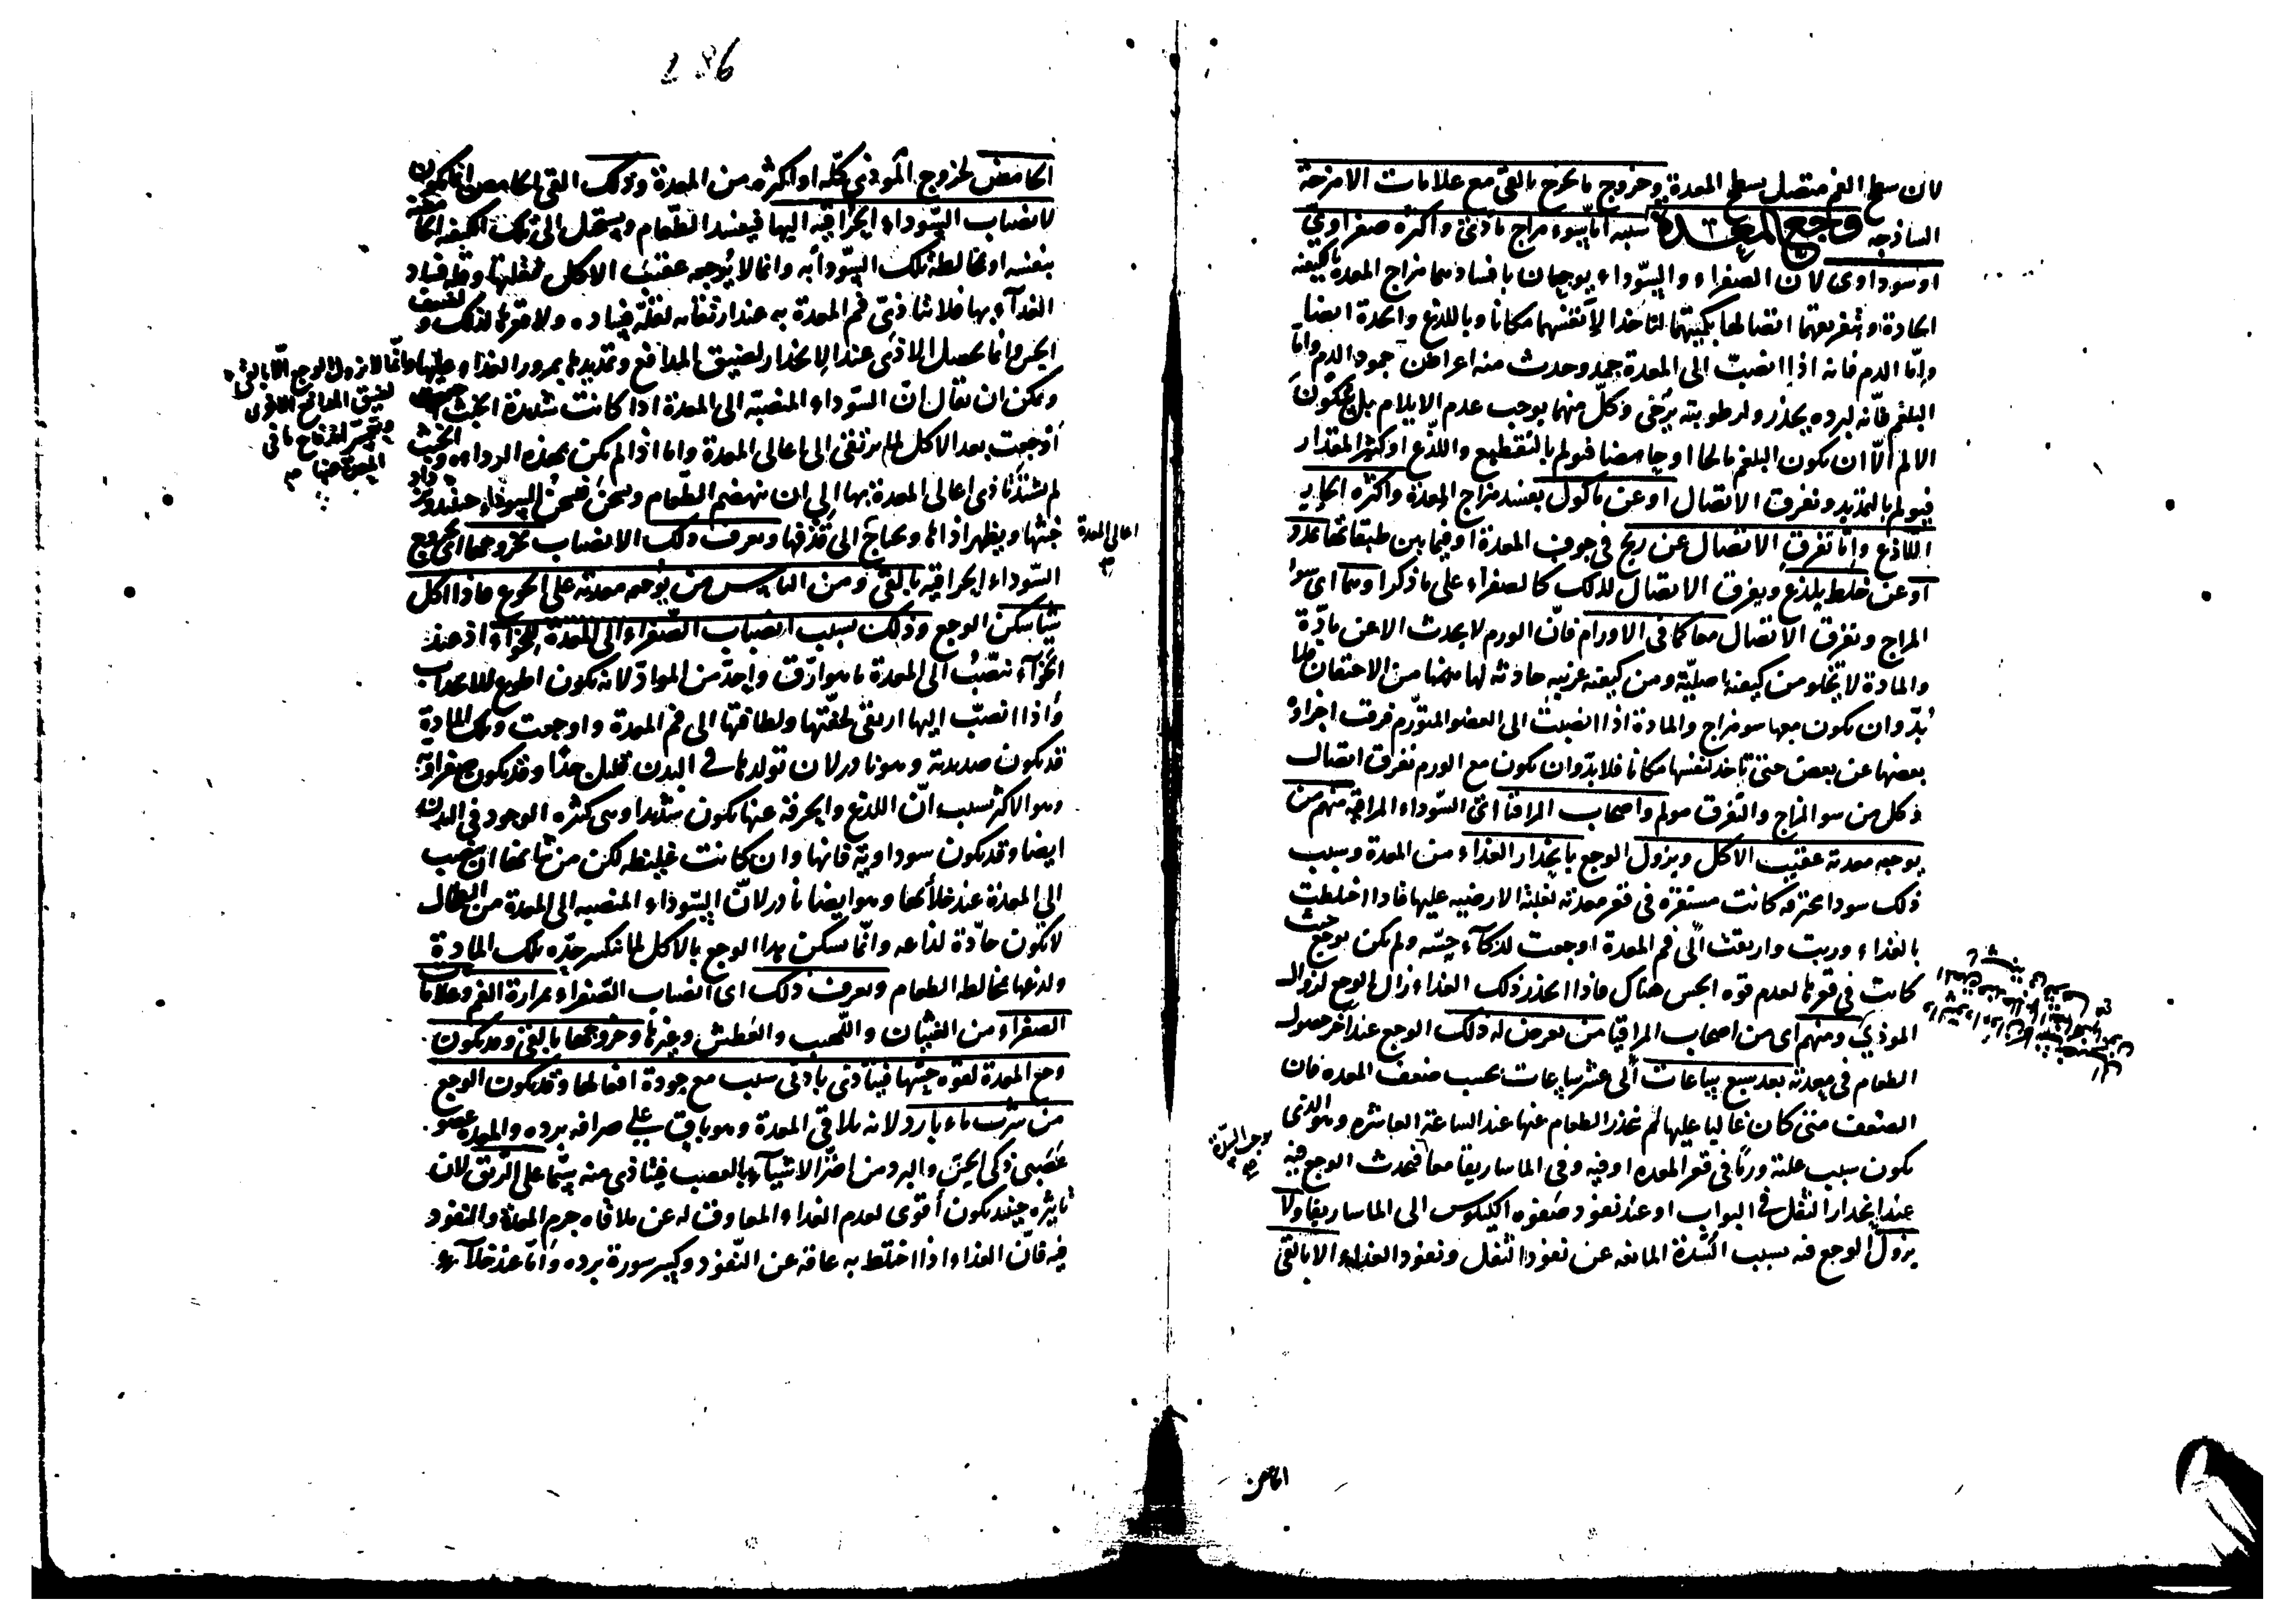 لان سطح الفم متصل بسطح المعدة وخروج ما يخرج بالقئ مع علامات الامزجة
الساذجه وجع المعدة سببه اما سوء مزاج مادي واكثره صفراوي
او سوداوى لان الصفراء والسوداء يوجعان بافسادهما مزاج المعدة بالكيفية
الحادة وتفريقهما اتصالها بكميتهما لتأخذا لانفسهما مكانا وباللذع والحدة ايضا
واما الدم فانه اذا انصب الى المعدة جمد وحدث منه اعراض جمود الدم واما
البلغم فانه لبرده يخدر ولرطوبته يرخى وكل منهما يوجب عدم الايلام بل يكون
الالم الا ان يكون البلغم مالحا او حامضا فيولم بالتقطيع واللذع او كثير المقدار
فيولم بالتمديد وتفرق الاتصال او عن ماكول يفسد مزاج المعدة واكثره الحار
اللاذع واما تفرق الاتصال عن ريح في جوف المعدة او فيما بين طبقاتها تمدد
او عن خلط يلذع ويفرق الاتصال لذلك كالصفراء على ما ذكرا وهما اى سوء
المزاج وتفرق الاتصال معا كما فى الاورام فان الورم لا يحدث الا عن مادة
والمادة لا تخلو من كيفية اصلية ومن كيفية غريبه حادثه لها من الاحتقان فلا
بد وان يكون معها سو مزاج والمادة اذا انصبت الى العضو المتورم فرقت اجزاه
بعضها عن بعض حتى تأخذ لنفسها مكانا فلا بد وان يكون مع الورم تفرق اتصال
وكل من سو المزاج والتفرق مولم واصحاب المراقيا اى السوداء المراقية منهم من
يوجعه معدته عقيب الاكل ويزول الوجع بانحدار الغذاء من المعدة وسبب
ذلك سودا محترقه كانت مستقرة فى قعر معدته لغلبة الارضيه عليها فاذا اختلطت
بالغذاء وربت وارتفعت الى فم المعدة اوجعت لذكاء حسه ولم يكن يوجع حيث
كانت فى قعرها لعدم قوه الحس هناك فاذا انحدر ذلك الغذاء زال الوجع لزوال
الموذي ومنهم اى من اصحاب المراقيا من يعرض له ذلك الوجع عند آخر حصول
الطعام فى معدته بعد سبع ساعات الى عشر ساعات بحسب ضعف المعده فان
الضعف متى كان غالبا عليها لم ينحدر الطعام عنها عند الساعة العاشره وهو الذى
يكون سبب علته ورما فى قعر المعده او فيه وفى الماساريقا معا فيحدث الوجع فيه
يوجب السدة
عند انحدار الثفل فى البواب او عند نفوذ صفوه الكيلوس الى الماساريقا ولا
يزول الوجع فيه بسبب السدة المانعه عن نفوذ الثفل ونفوذ الغذاء الا بالقئ
الحامض
286
الحامض لخروج الموذي كله او اكثره من المعدة وذلك القى الحامض انما يكون
لانصاب السوداء الحراقيه اليها فيفسد الطعام ويستحيل الى تلك الكيفيه الحامضه
بنفسه او بمخالطة تلك السودا به وانما لا يوجعه عقيب الاكل لقلتها وقلة فساد
الغذاء بها فلا يتاذى فم المعدة به عند ارتفاعه لقلة فساده ولا قعرها لذلك ولضعف
الحس وانما يحصل الاذى عند الانحدار لضيق المدافع وتمديدها بمرور الغذاء عليها وانما لا يزول الوجع الا بالقئ
لضيق المدافع
ويمكن ان يقال ان السوداء المنصبه الى المعدة اذا كانت شديدة الخبث
اوجعت بعد الاكل لما ترتقى الى اعالى المعدة واما اذا لم يكن بهذه الرداءه والخبث
لم يشتد تاذى اعالى المعدة بها الى ان ينهضم الطعام ويسخن فتسخن السوداء حينئذ ويزداد
اعالى المعدة
خبثها ويظهر اذاها ويحتاج الى قذفها ويعرف ذلك الانصباب بخروجها اى خروج
السوداء الحراقيه بالقئ ومن الناس من يوجعه معدته على الجوع فاذا اكل
شيا سكن الوجع وذلك بسبب انصباب الصفراء الى المعدة للخواء اذ عند
الخواء تنصب الى المعدة ما هو ارق واحد من المواد لانه يكون اطوع للانجذاب
واذا انصب اليها ارتقى لخفتها ولطافتها الى فم المعدة واوجعت وتلك المادة
قد يكون صديدية وهو نادر لان تولدها فى البدن قليل جدا وقد يكون صفراوية
وهو الاكثر بسبب ان اللذع والحرقه عنها يكون شديدا وهى كثيره الوجود فى البدن
ايضا وقد يكون سوداوية فانها وان كانت غليظه لكن من شانها ان ينصب
الى المعدة عند خلائها وهو ايضا نادر لان السوداء المنصبه الى المعدة من الطحال
لا يكون حادة لذاعه وانما يسكن هذا الوجع بالاكل لما ينكسر حده تلك المادة
ولذعها بمخالطه الطعام ويعرف ذلك اى انصباب الصفراء بمرارة الفم وعلامات
الصفراء من الغثيان واللهب والعطش وغيرها وخروجها بالقئ وقد يكون
وجع المعدة لقوه حسها فيتاذى بادنى سبب مع جودة افعالها وقد يكون الوجع
من شرب ماء بارد لانه يلاقى المعدة وهو باق على صرافه برده والمعدة عضو
عصبى ذكى الحس والبرد من اضر الاشياء بالعصب فيتاذى منه سيما على الريق لان
تاثيره حينئذ يكون أقوى لعدم الغذاء المعاوق له عن ملاقاه جرم المعدة والنفوذ
فيه فان الغذاء اذا اختلط به عاقه عن النفوذ وكسر سورة برده واما عند خلآئه